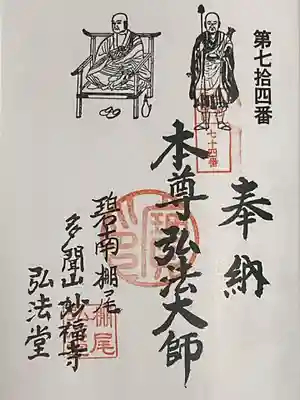 第七拾四番
七十四番
奉納
本尊弘法大師
碧南棚尾
多聞山妙福寺
弘法堂
棚尾